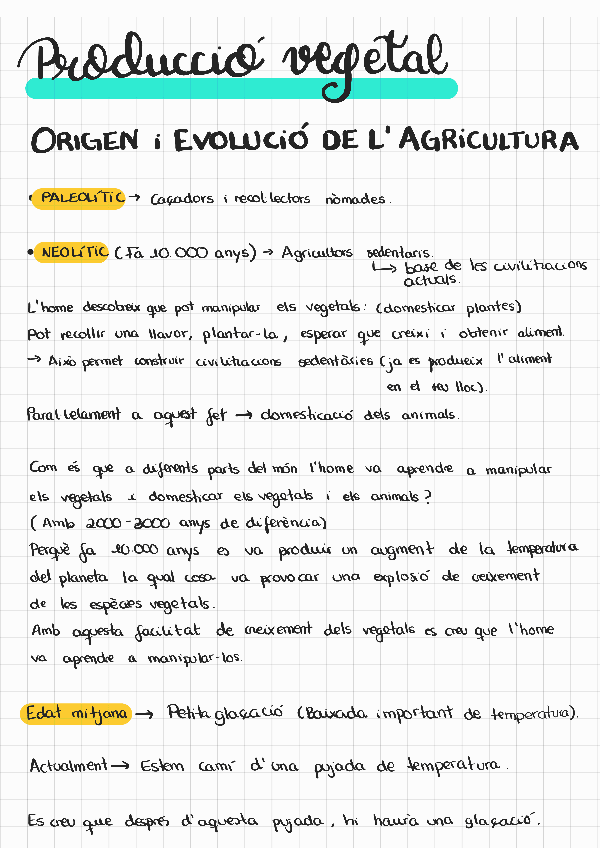 Producció vegetal
ORIGEN i EVOLUCIÓ DE L'AGRICULTURA
• PALEOLÍTIC → Caçadors i recol·lectors nòmades.
• NEOLÍTIC (Fa 10.000 anys) → Agricultors sedentaris.
↳ base de les civilitzacions
actuals.
L'home descobreix que pot manipular els vegetals: (domesticar plantes)
Pot recollir una llavor, plantar-la, esperar que creixi i obtenir aliment.
→ Això permet construir civilitzacions sedentàries (ja es produeix l'aliment
en el seu lloc).
Paral·lelament a aquest fet → domesticació dels animals.
Com és que a diferents parts del món l'home va aprendre a manipular
els vegetals i domesticar els vegetals i els animals?
(Amb 2000-3000 anys de diferència)
Perquè fa 10.000 anys es va produir un augment de la temperatura
del planeta la qual cosa va provocar una explosió de creixement
de les espècies vegetals.
Amb aquesta facilitat de creixement dels vegetals es creu que l'home
va aprendre a manipular-los.
Edat mitjana → Petita glaçació (Baixada important de temperatura).
Actualment → Estem camí d'una pujada de temperatura.
Es creu que després d'aquesta pujada, hi haurà una glaçació.